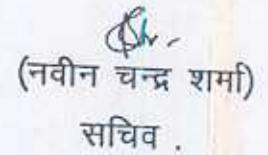 (नवीन चन्द्र शर्मा)
सचिव .